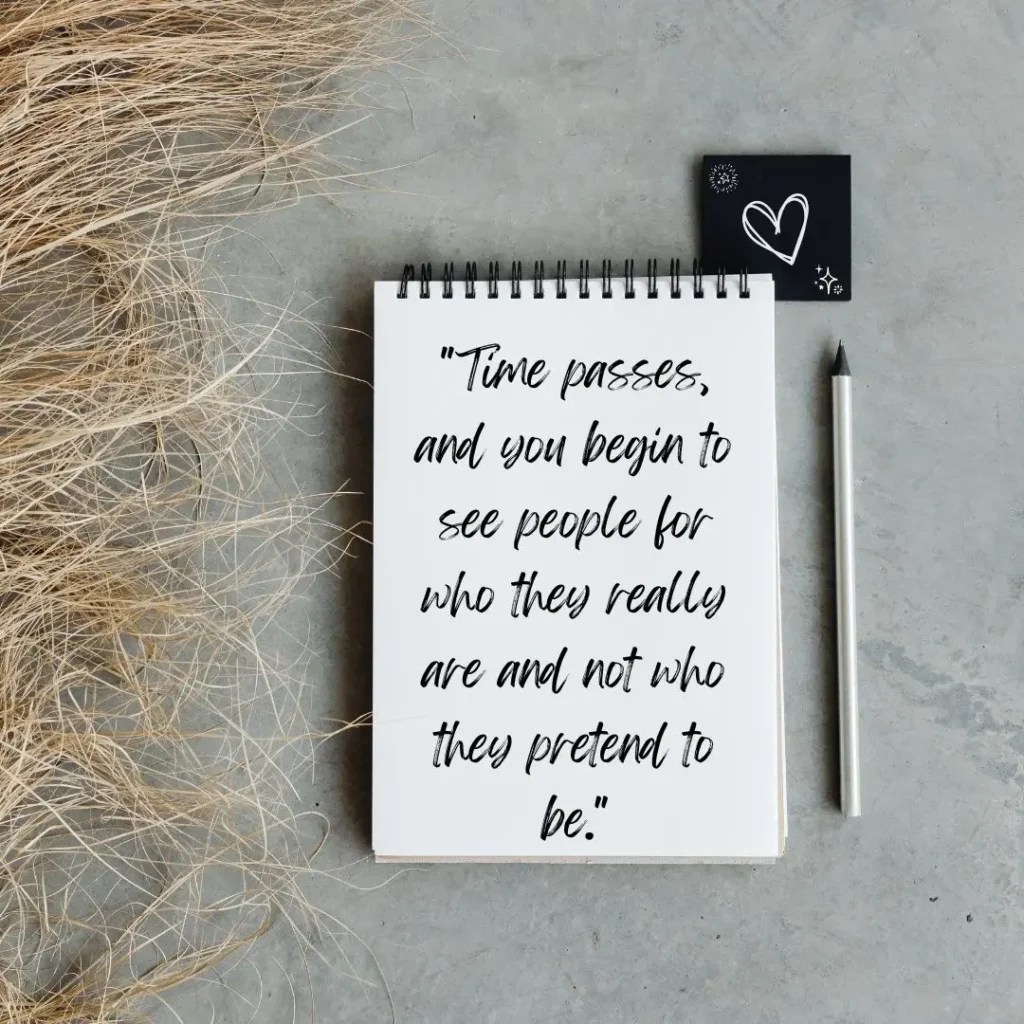 "Time passes,
and you begin to
see people for
who they really
are and not who
they pretend to
be."